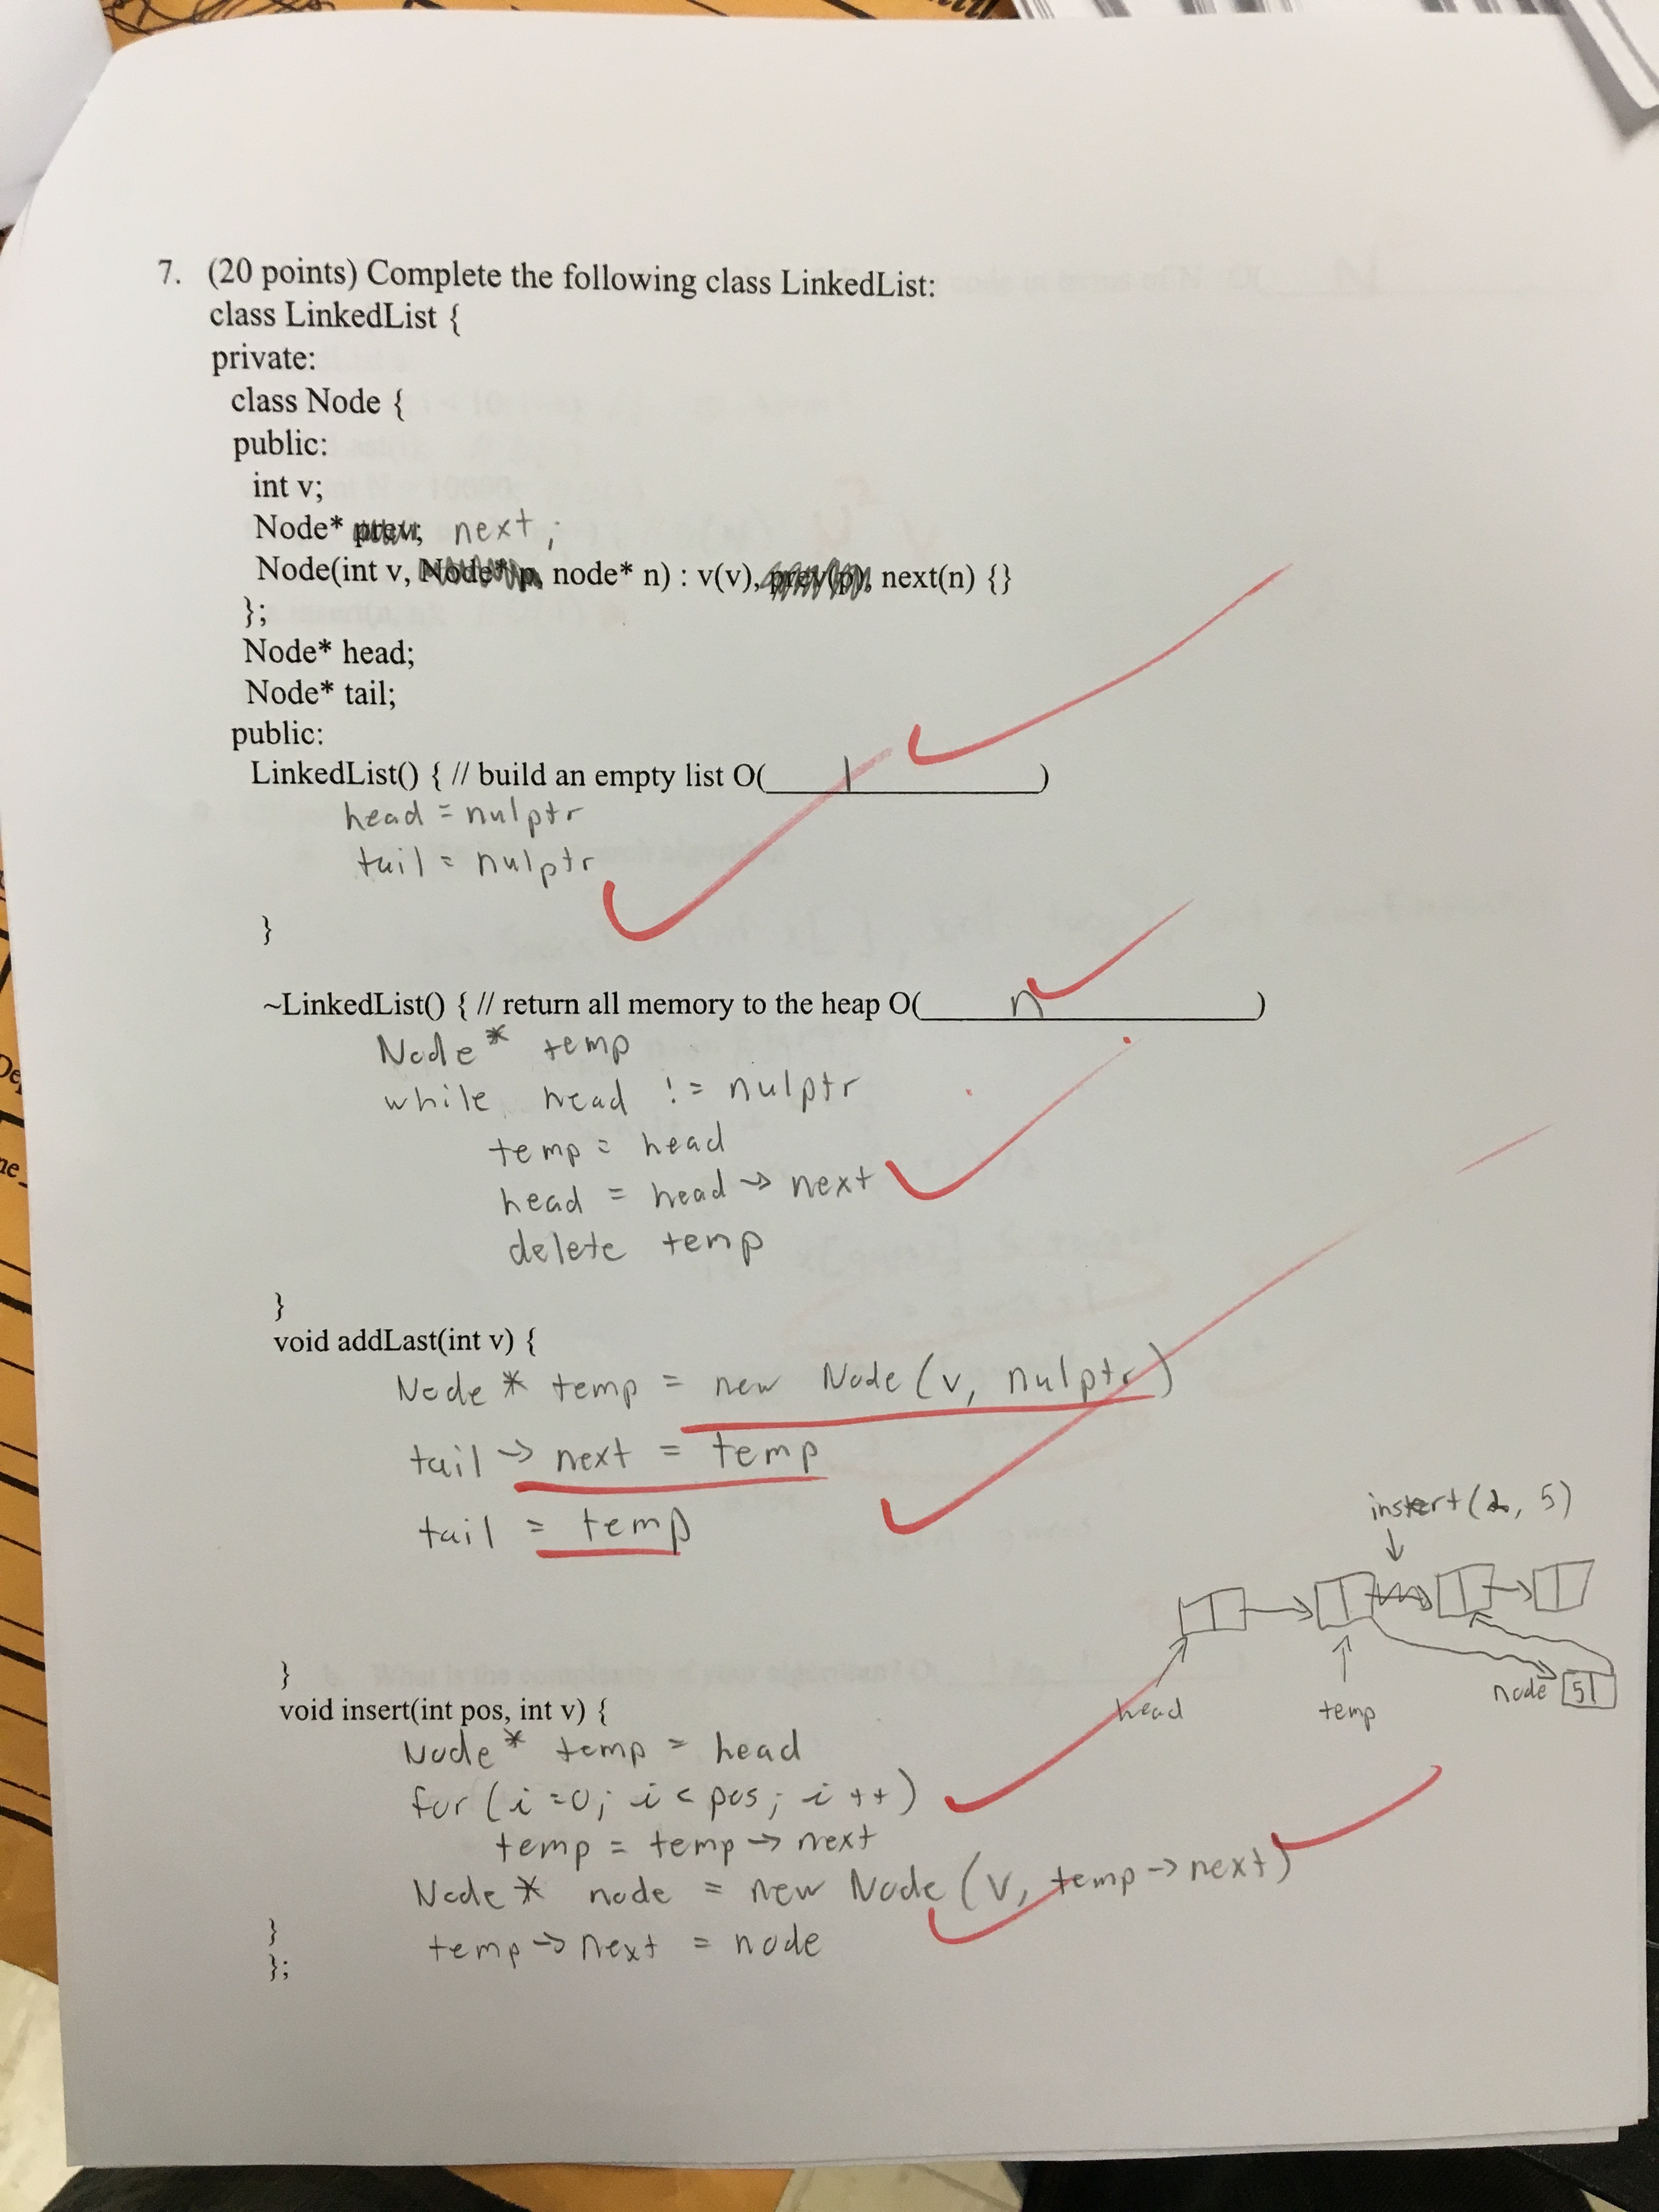 7. (20 points) Complete the following class LinkedList:
class LinkedList {
private:
class Node {
public:
int v;
Node* prev; next;
Node(int v, Node* p, node* n) : v(v), prev(p), next(n) {}
};
Node* head;
Node* tail;
public:
LinkedList() { // build an empty list O( 1 )
head = nulptr
tail = nulptr
}
~LinkedList() { // return all memory to the heap O( n )
Node* temp
while head != nulptr
temp = head
head = head -> next
delete temp
}
void addLast(int v) {
Node * temp = new Node (v, nulptr)
tail -> next = temp
tail = temp
}
void insert(int pos, int v) {
Node * temp = head
for (i=0; i < pos; i ++)
temp = temp -> next
Node * node = new Node (v, temp -> next)
}
temp -> next = node
};
5)
head
temp
node 5